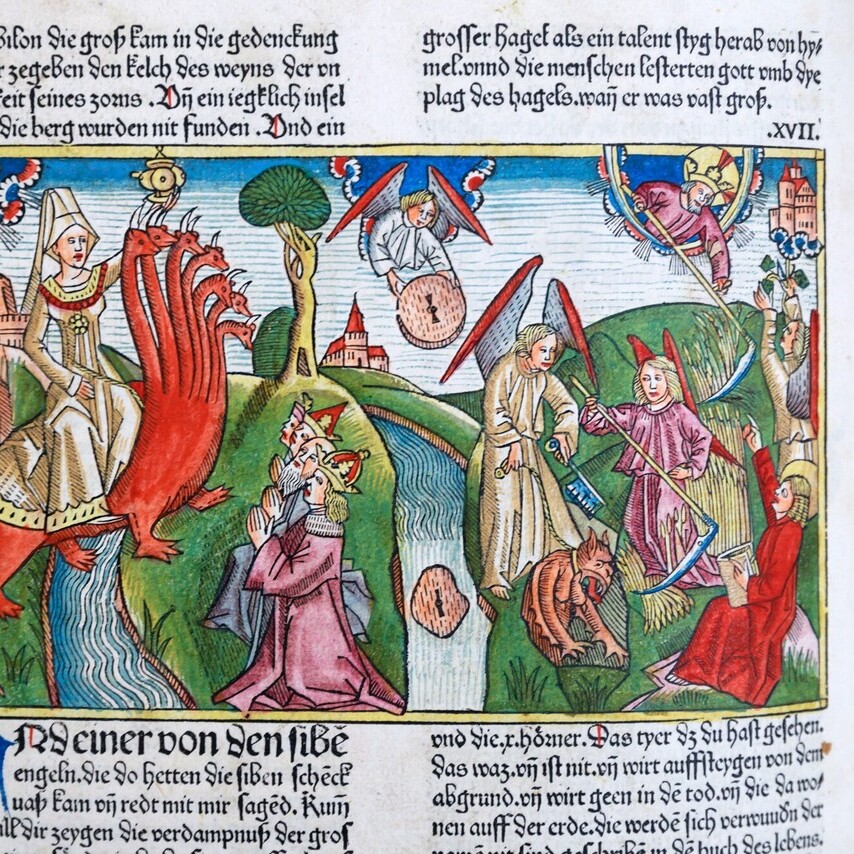 bilon die groß kam in die gedenckung
zegeben den kelch des weyns der vn
keit seines zorns .Vn̄ ein iegklich insel
die berg wurden nit funden .Vnd ein
grosser hagel als ein talent styg herab von hy⸗
mel.vnnd die menschen lesterten gott vmb dye
plag des hagels.wan̄ er was vast groß.
.XVII.
Nd einer von den sibē
engeln.die do hetten die siben schēck
uaß kam vn̄ redt mit mir sagēd. Kum̄
dir zeygen die verdampnuß der gros
vnd die.x.hörner.Das tyer dz du hast gesehen.
das waz.vn̄ ist nit.vn̄ wirt auffsteygen von dem
abgrund.vn̄ wirt geen in dē tod.vn̄ die da wo⸗
nen auff der erde.die werdē sich verwundn̄ der
namē nit sind geschribē in dē buch des lebens.